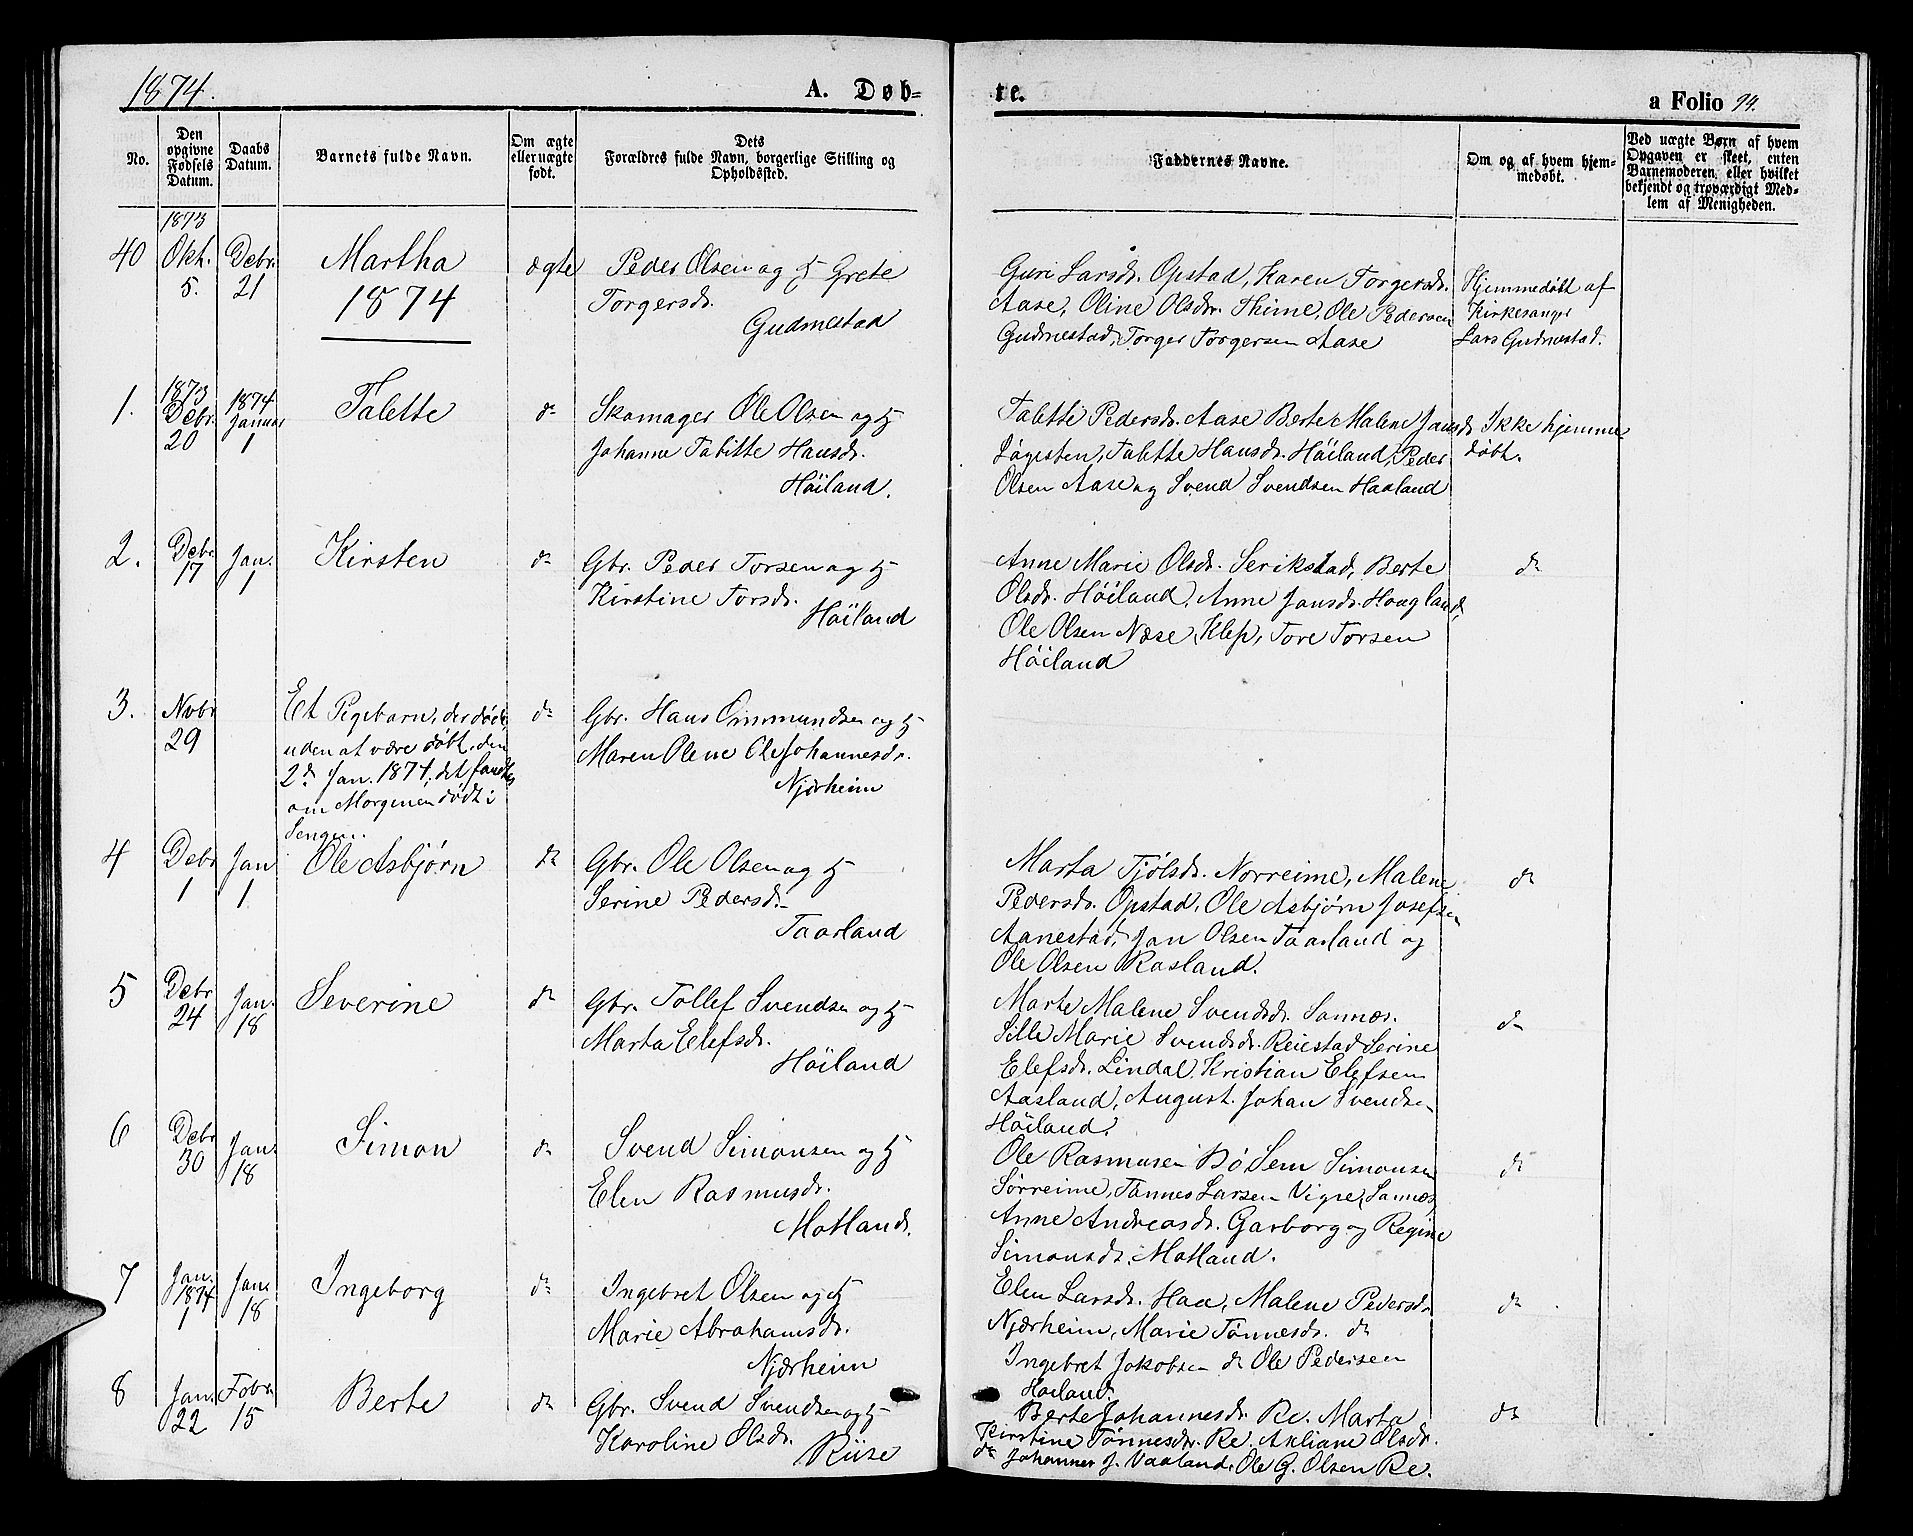 1874.
A. Døb-
te.
a Folio 94.
No.
Den opgivne Fødsels Datum.
Daabs Datum.
Barnets fulde Navn.
Om ægte eller uægte født.
Dets Forældres fulde Navn, borgerlige Stilling og Opholdssted.
Faddernes Navne.
Om og af hvem hjem-
medøbt.
Ved uægte Børn af hvem
Opgaven er skeet, enten
Barnemoderen, eller hvilket
bekjendt og troværdigt Med-
lem af Menigheden.
1873
40 Okt. 5. Debr. 21 Martha ægte Peder Olsen og H Grete
Torgersdr.
Gudmestad
1874
Guri Larsdr. Opstad, Karen Torgersdr.
Aase, Oline Olsdr. Thime, Ole Pedersen
Gudmestad, Torger Torgersen Aase
Hjemmedøbt af
Kirkesanger
Lars Gudmestad.
1. 1873 Debr. 20 1874 Januar 1 Talette do Skomager Ole Olsen og H
Johanne Tabitte Hansdr.
Höiland.
Talette Pedersdr. Aase Berte Malene Jansdr
Løgesten, Talette Hansdr. Höiland, Peder
Olsen Aase og Svend Svendsen Haaland
Ikke hjemme
døbt.
2. Debr 17 Jan. 1 Kirsten do Gbr. Peder Torsen og H
Kirstine Torsdr.
Höiland
Anne Marie Olsdr. Serikstad, Berte
Olsdr. Höiland, Anne Jansdr. Haugland,
Ole Olsen Næse, Klep, Tore Torsen
Höiland
do
3. Nvbr 29 Et Pigebarn, der døde
uden at være døbt, den
2dn Jan. 1874; det fandtes
om Morgenen dødt i
Sengen.
do Gbr. Hans Ommundsen og H
Maren Olene Ole Johannesdr.
Njærheim
4 Debr 1 Jan 1. Ole Asbjørn do Gbr. Ole Olsen og H
Serine Pedersdr.
Taarland
Marta Tjølsdr. Norreime, Malene
Pedersdr. Opstad, Ole Asbjørn Josefsen
Aanestad, Jan Olsen Taarland og
Ole Olsen Rosland.
do
5 Debr 24 Jan. 18 Severine do Gbr. Tollef Svendsen og H
Marta Elefsdr.
Höiland
Marte Malene Svendsdr. Sannæs.
Sille Marie Svendsdr. Reiestad Serine
Elefsdr. Lindal, Kristian Elefsen
Aasland, August Johan Svendsen
Höiland.
do
6 Debr 30 Jan. 18 Simon do Svend Simonsen og H
Elen Rasmusdr.
Motland.
Ole Rasmusen Bö Sem Simonsen
Sørreime, Tønnes Larsen Vigre, Sannæs,
Anne Andreasdr. Garborg og Regine
Simonsdr. Motland.
do
7 Jan. 1874 1 Jan. 18 Ingeborg do Ingebret Olsen og H
Marie Abrahamsdr.
Njærheim
Elen Larsdr. Haa, Malene Pedersdr
Njærheim, Marie Tønnesdr. do
Ingebret Jakobsen do Ole Pedersen
Höiland.
do
8 Jan. 22 Febr. 15 Berte do Gbr. Svend Svendsen og H
Karoline Olsdr.
Riise
Berte Johannesdr. Re. Marta
Kirstine Tønnesdr. Re. Akliane Olsdr.
do Johannes J. Vaaland, Ole G. Olsen Re.
do